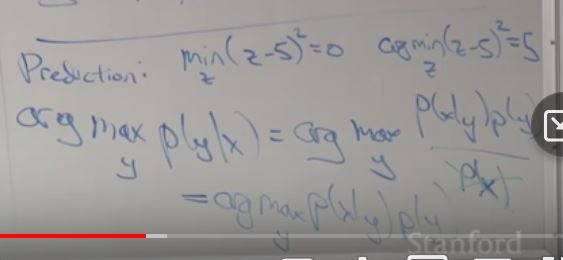 Prediction: min_z (z-5)² = 0 arg min_z (z-5)² = 5
arg max_y p(y|x) = arg max_y p(x|y) p(y) / p(x)
= arg max_y p(x|y) p(y
Stanford